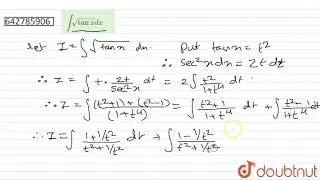 642785906 ∫√tan x dx
let I = ∫√tan x dx Put tan x = t²
∴ sec²x dx = 2t dt
∴ I = ∫ t · 2t/sec²x dt = 2∫ t²/(1+t⁴) dt
∴ I = ∫ ((t²+1)+(t²-1))/(1+t⁴) dt = ∫ (t²+1)/(1+t⁴) dt + ∫ (t²-1)/(1+t⁴) dt
∴ I = ∫ (1+1/t²)/(t²+1/t²) dt + ∫ (1-1/t²)/(t²+1/t²)
doubtnut